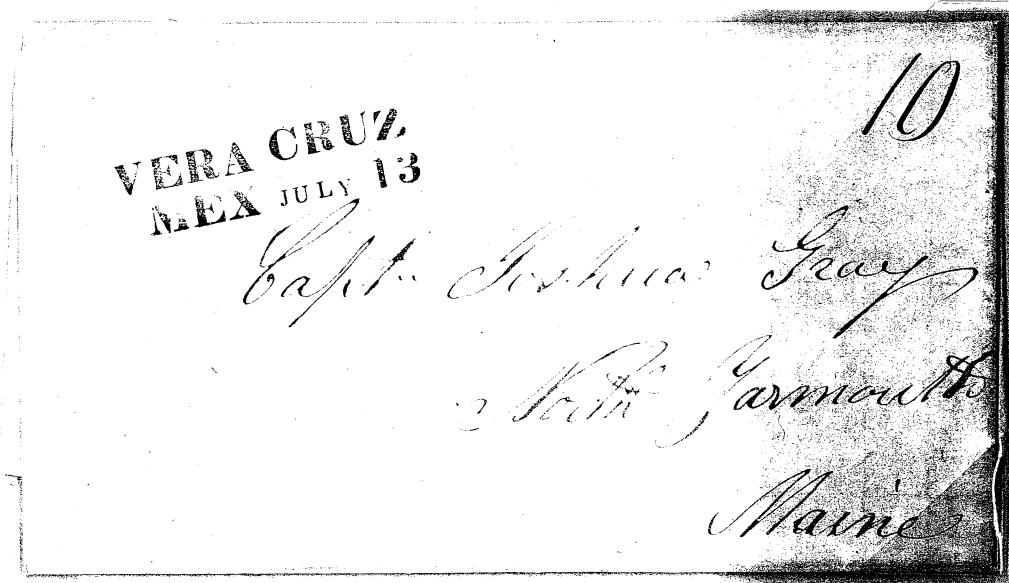 10
VERA CRUZ
MEX JULY 13
Capt. Joshua Gray
North Yarmouth
Maine